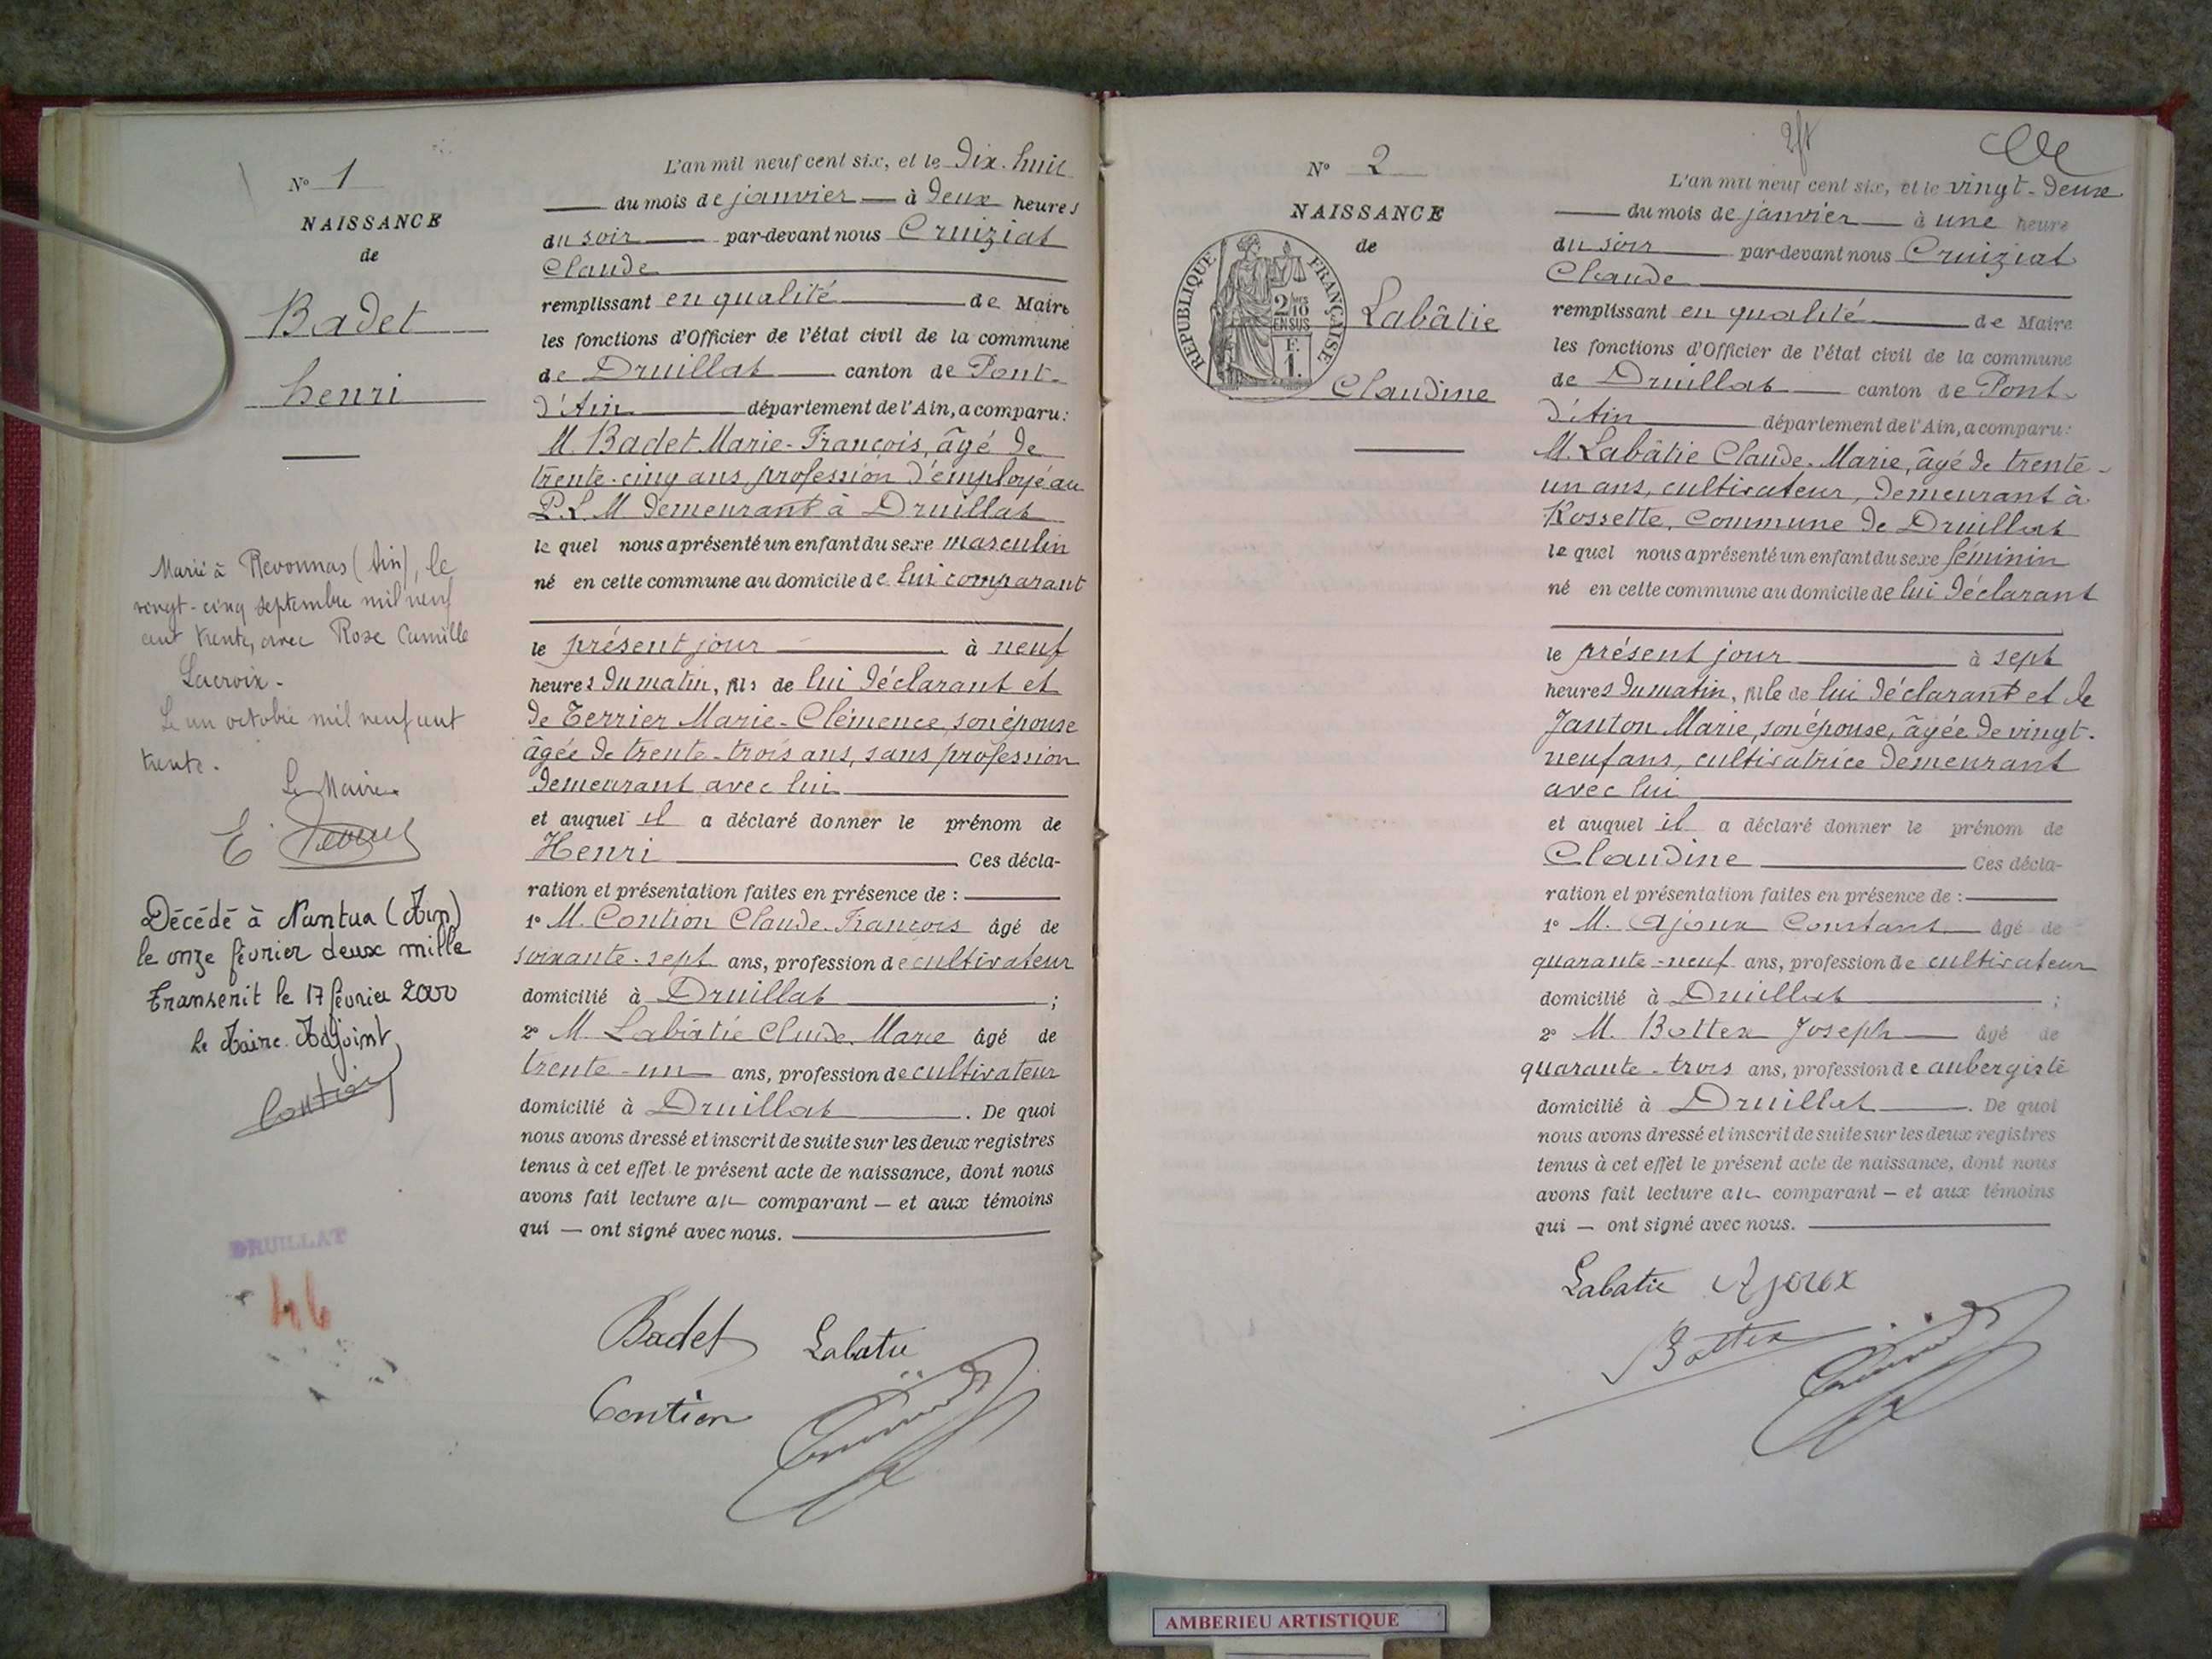 N° 1
NAISSANCE
de
Badet
henri
Marié à Revonnas (Ain), le
vingt-cinq septembre mil neuf
cent trente, avec Rose Camille
Lacroix.
Le un octobre mil neuf cent
trente.
Le Maire
E.
Décédé à Nantua (Ain)
le onze février deux mille
Transcrit le 17 février 2000
le Maire Adjoint
Contion
DRUILLAT
46
L'an mil neuf cent six, et le Dix-huit
du mois de janvier à deux heures
du soir par-devant nous Cruiziat
Claude
remplissant en qualité de Maire
les fonctions d'Officier de l'état civil de la commune
de Druillat canton de Pont-
d'Ain département de l'Ain, a comparu:
M. Badet Marie-François, âgé de
trente-cinq ans, profession d'employé au
P.L.M demeurant à Druillat
le quel nous a présenté un enfant du sexe masculin
né en cette commune au domicile de lui comparant
le présent jour à neuf
heures du matin, fils de lui déclarant et
de Terrier Marie-Clémence, son épouse
âgée de trente-trois ans, sans profession
demeurant avec lui
et auquel il a déclaré donner le prénom de
Henri Ces décla-
ration et présentation faites en présence de :
1° M. Contion Claude-François âgé de
soixante-sept ans, profession de cultivateur
domicilié à Druillat ;
2° M. Labâtie Claude-Marie âgé de
trente-un ans, profession de cultivateur
domicilié à Druillat. De quoi
nous avons dressé et inscrit de suite sur les deux registres
tenus à cet effet le présent acte de naissance, dont nous
avons fait lecture au comparant — et aux témoins
qui — ont signé avec nous.
Badet Labatie
Contion
N° 2
NAISSANCE
de
RÉPUBLIQUE FRANÇAISE
2/10
EN SUS
F.
1.
Labâtie
Claudine
L'an mil neuf cent six, et le vingt-deux
du mois de janvier à une heure
du soir par-devant nous Cruiziat
Claude
remplissant en qualité de Maire
les fonctions d'Officier de l'état civil de la commune
de Druillat canton de Pont-
d'Ain département de l'Ain, a comparu:
M. Labâtie Claude-Marie, âgé de trente-
un ans, cultivateur, demeurant à
Rossette, commune de Druillat
le quel nous a présenté un enfant du sexe féminin
né en cette commune au domicile de lui déclarant
le présent jour à sept
heures du matin, fille de lui déclarant et de
Janton Marie, son épouse, âgée de vingt-
neuf ans, cultivatrice demeurant
avec lui
et auquel il a déclaré donner le prénom de
Claudine Ces décla-
ration et présentation faites en présence de :
1° M. Ajoux Constant âgé de
quarante-neuf ans, profession de cultivateur
domicilié à Druillat ;
2° M. Bottex Joseph âgé de
quarante-trois ans, profession de aubergiste
domicilié à Druillat. De quoi
nous avons dressé et inscrit de suite sur les deux registres
tenus à cet effet le présent acte de naissance, dont nous
avons fait lecture au comparant — et aux témoins
qui — ont signé avec nous.
Labatie Ajoux
Bottex
AMBERIEU ARTISTIQUE